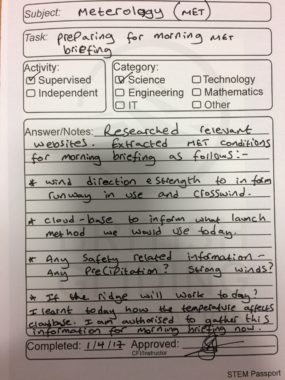 Subject: Meterology (MET)
Task: preparing for morning MET
briefing
Activity:
Category:
Supervised
Science
Technology
Independent
Engineering
Mathematics
IT
Other
Answer/Notes: Researched relevant
websites. Extracted MET conditions
for morning briefing as follows:-
* wind direction & strength to inform
runway in use and crosswind.
* cloud-base to inform what launch
method we would use today.
* Any safety related information -
Any precipitation? Strong winds?
* If the ridge will work today?
I learnt today how the temperature affects
cloudbase. I am authorised to gather this
information for morning briefing now.
Completed: 1/4/17 Approved:
CFI/Instructor
STEM Passport